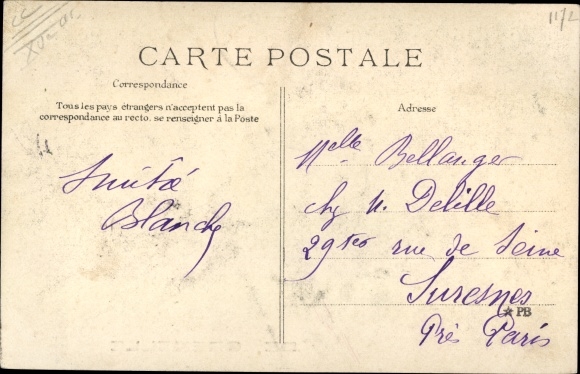 1172
CARTE POSTALE
Correspondance
Tous les pays étrangers n'acceptent pas la
correspondance au recto. se renseigner à la Poste
Adresse
Blanche
Melle Bellanger
chez M. Delille
29 ter rue de Seine
Suresnes
PB
Près Paris